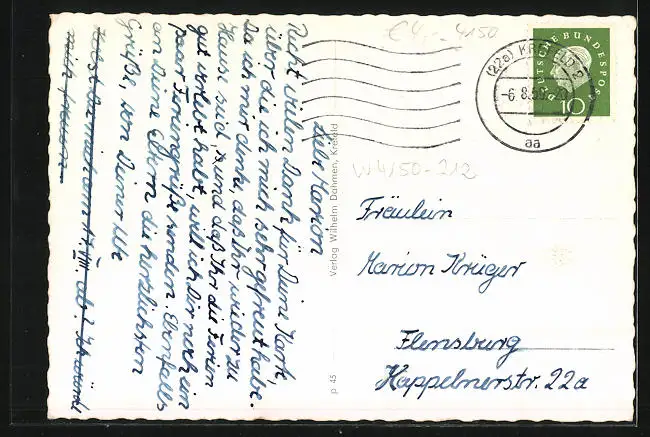 Liebe Marion
Recht vielen Dank für Deine Karte,
über die ich mich sehr gefreut habe.
Da ich mir denke, daß Ihr wieder zu
Hause seid, und daß Ihr die Ferien
gut verlebt habt, will ich Dir noch ein
paar Feriengrüße senden. Ebenfalls
an Deine Eltern die herzlichsten
Grüße, von Deiner Ute
Hast Du nicht am 17. VIII. Ich würde
mich freuen.
Verlag Wilhelm Dahmen, Krefeld
p 45
€ 4,- 4150
W4150-212
(22a) KREFELD 2
-6.8.59
aa
DEUTSCHE BUNDESPOST
10
Fräulein
Marion Krüger
Flensburg
Kappelnerstr. 22a